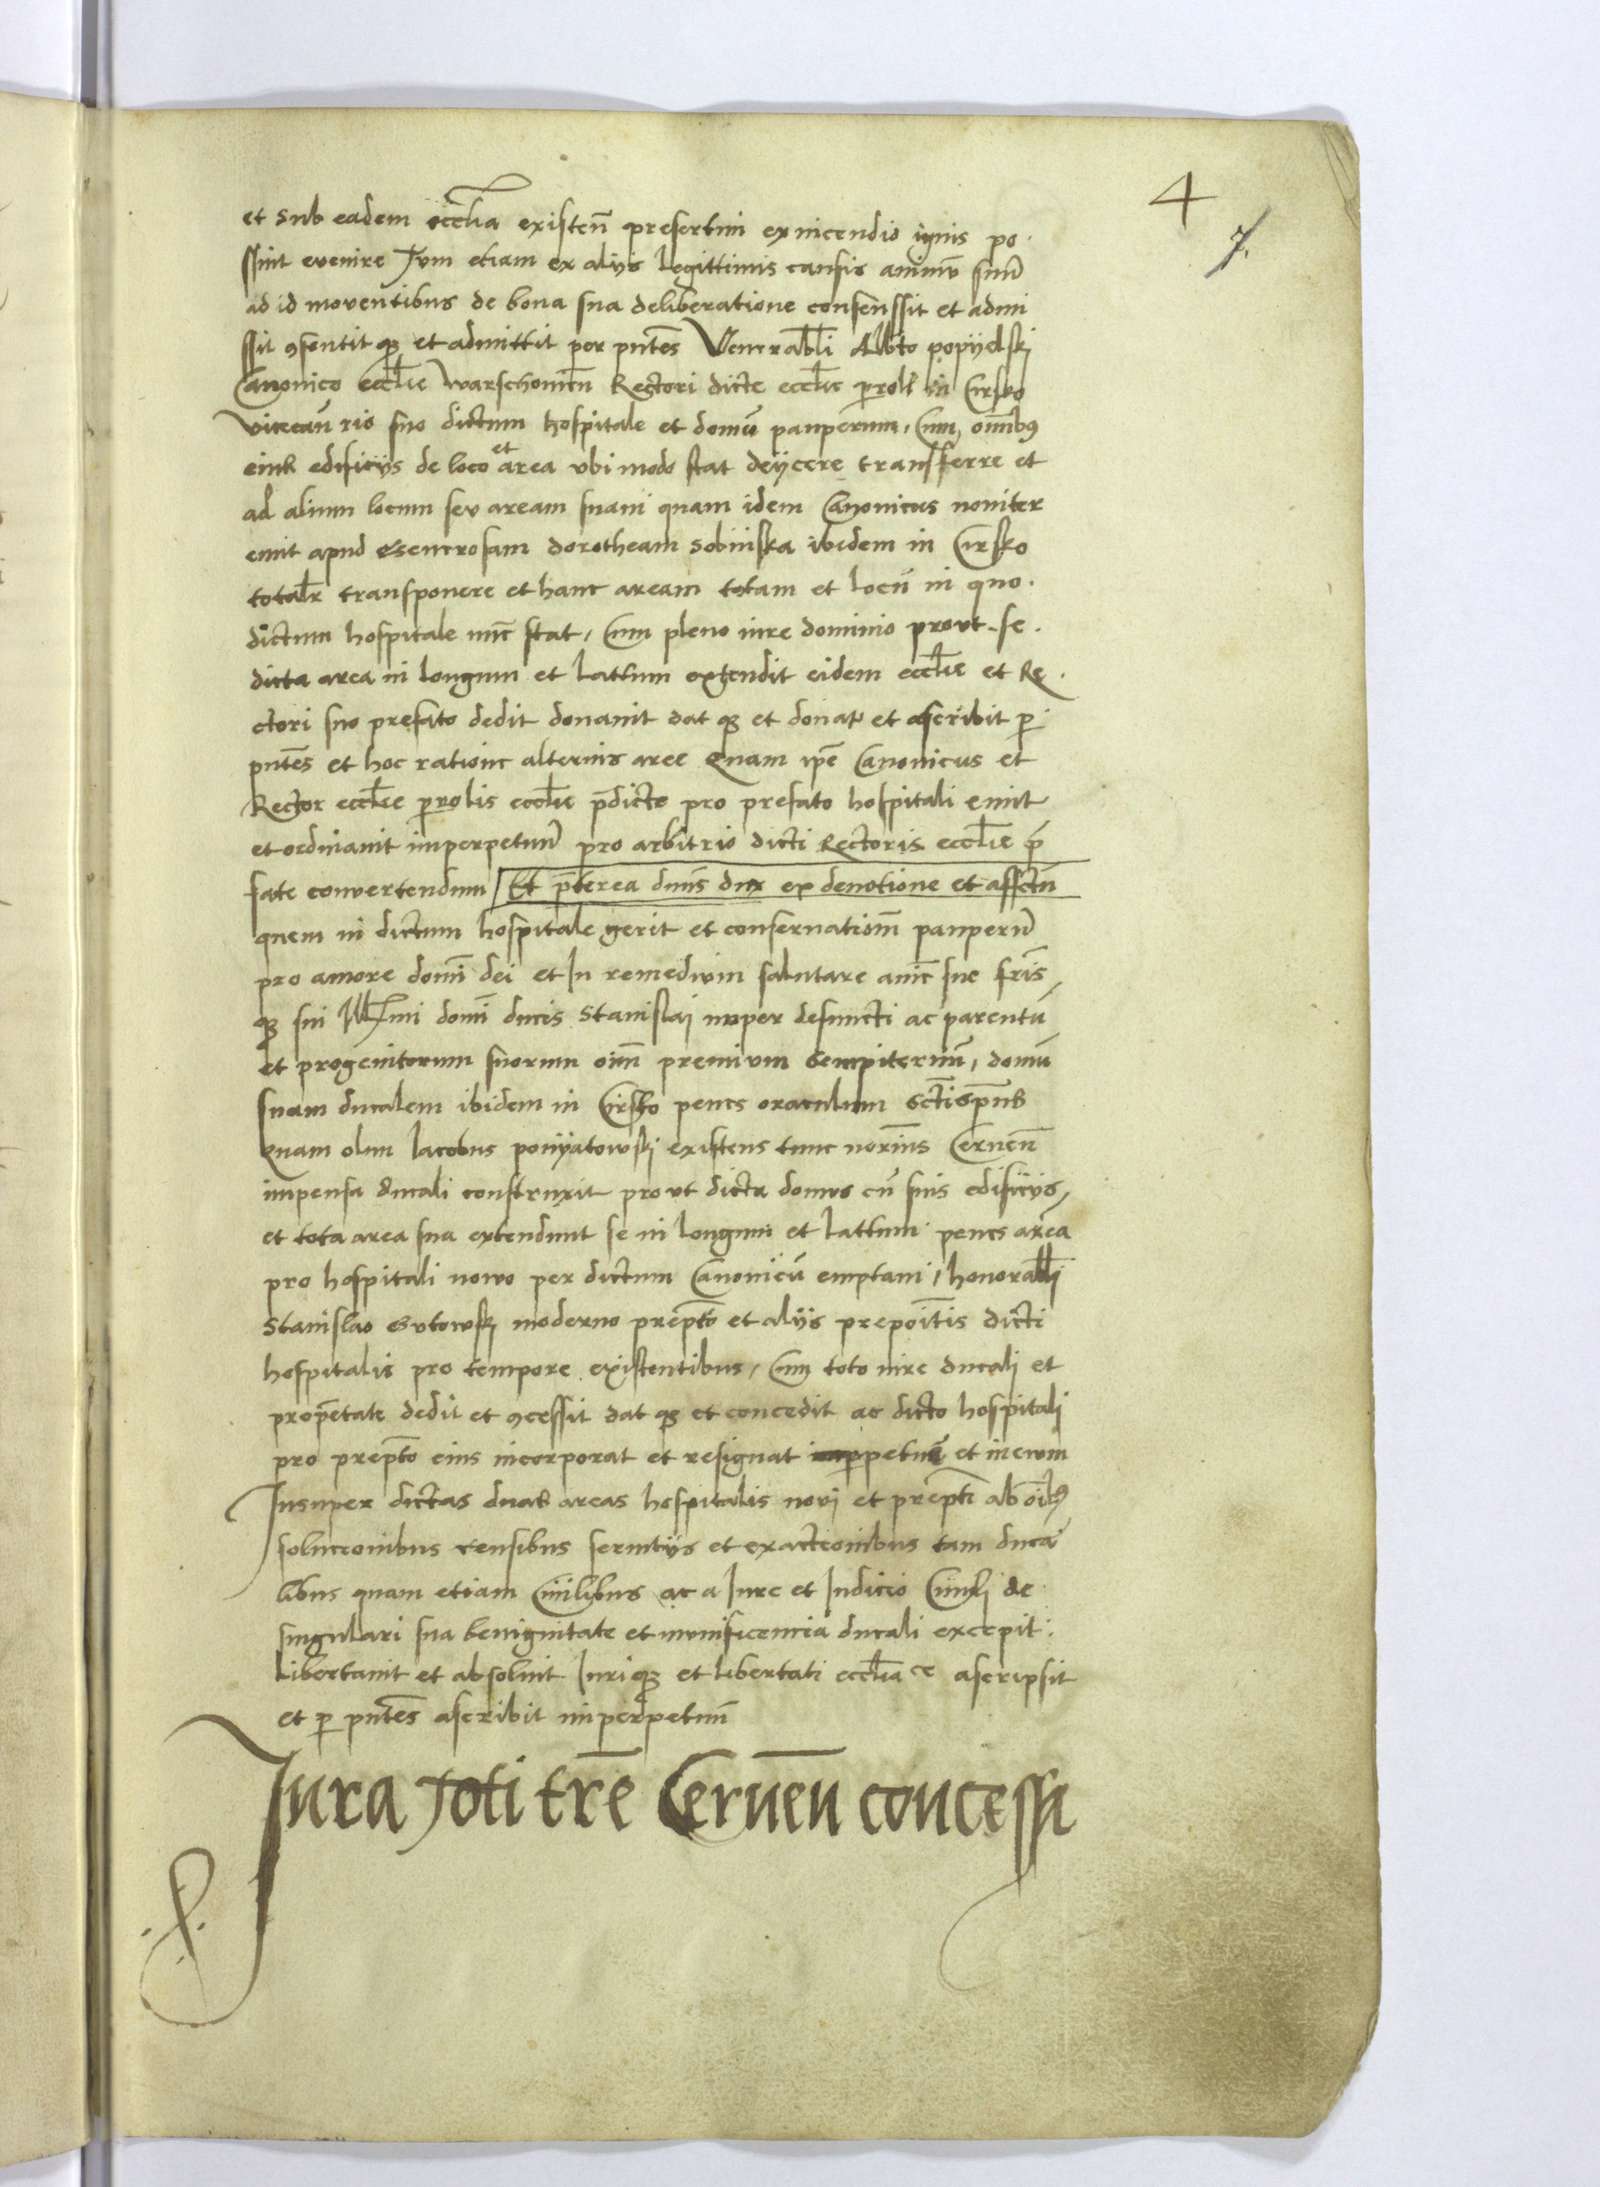 4
7.
et sub eadem eccl̅ia existen̅ presertim ex incendio ignis po
ssint evenire Tvm etiam ex alÿs legittimis causis animu̅ suu̅
ad id moventibus de bona sua deliberatione consenssit et admi
ssit ꝯsentit qꝫ et admittit per pn̅tes Venerabl̅i Albto popÿelskj
Canonico eccl̅ie warschouien̅ Rectori dicte eccl̅ie p̱rol̅ in Cirsko
suo dictum hospitale et domu̅ pauperum, Cum, omn̅ibꝰ
eius edificÿs de loco et area vbi modo stat deÿcere transferre et
ad alium locum sev aream suam quam idem Canonicus noviter
emit apud Generosam dorotheam sobinska ibidem in Cirsko
totalr̅ transponere et hanc aream totam et locu̅ in quo
dictum hospitale nu̅c stat, Cum pleno iure dominio provt se
dicta area in longum et lattum extendit eidem eccl̅ie et Re
ctori suo prefato dedit donauit dat qꝫ et donat et ascribit p̱
pn̅tes et hoc ratione alterius aree Quam ip̅e Canonicus et
Rector eccl̅ie p̱rolis eccl̅ie p̅dicte pro prefato hospitali emit
et ordinauit imperpetuu̅ pro arbitrio dicti Rectoris eccl̅ie p̅
fate convertendum Et p̅terea dn̅us dux ex deuotione et affctu̅
quem in dictum hospitale gerit et conseruatiom̅ pauperu̅
pro amore domi̅ dei et In remedium salutare ani̅e sue fri̅s
qꝫ sui Ill̅mi domi̅ ducis Stanislaj nuper defuncti ac parentu̅
et progenitorum suorum oim̅ premium sempiternu̅, domu̅
suam ducalem ibidem in Cirsko penes oraculum Scti̅sp̅ns
Quam olim Iacobus ponÿatowskj existens tunc nori̅us Cernen̅
impensa ducali construxit provt dicta domus cu̅ suis edificÿs,
et tota area sua extendunt se in longum et lattum penes area
pro hospitali nowo per dictum Canonicu̅ emptam, honorabl̅i
Stanislao Gutowskj moderno prep̅to et alÿs prepoi̅tis dicti
hospitalis pro tempore existentibus, Cum toto iure ducali et
prop̅etate dedit et ꝯcessit dat qꝫ et concedit ac dicto hospitali
pro prep̅to eius incorporat et resignat imperpetuu̅ et in ewm
Insuper dictas duas areas hospitalis novj et prep̅ti ab oi̅bꝰ
solucionibus censibus seruitÿs et exactionibus tam duca
libus quam etiam Ciuilibus ac a Iure et Iudicio Ciuili de
singulari sua benignitate et munificencia ducali excepit
Libertauit et absoluit Iuriqꝫ et libertati eccl̅iace ascripsit
et p̱ pn̅tes ascribit imperpetuu̅
Iura Toti tr̅e Cernen̅ concessi